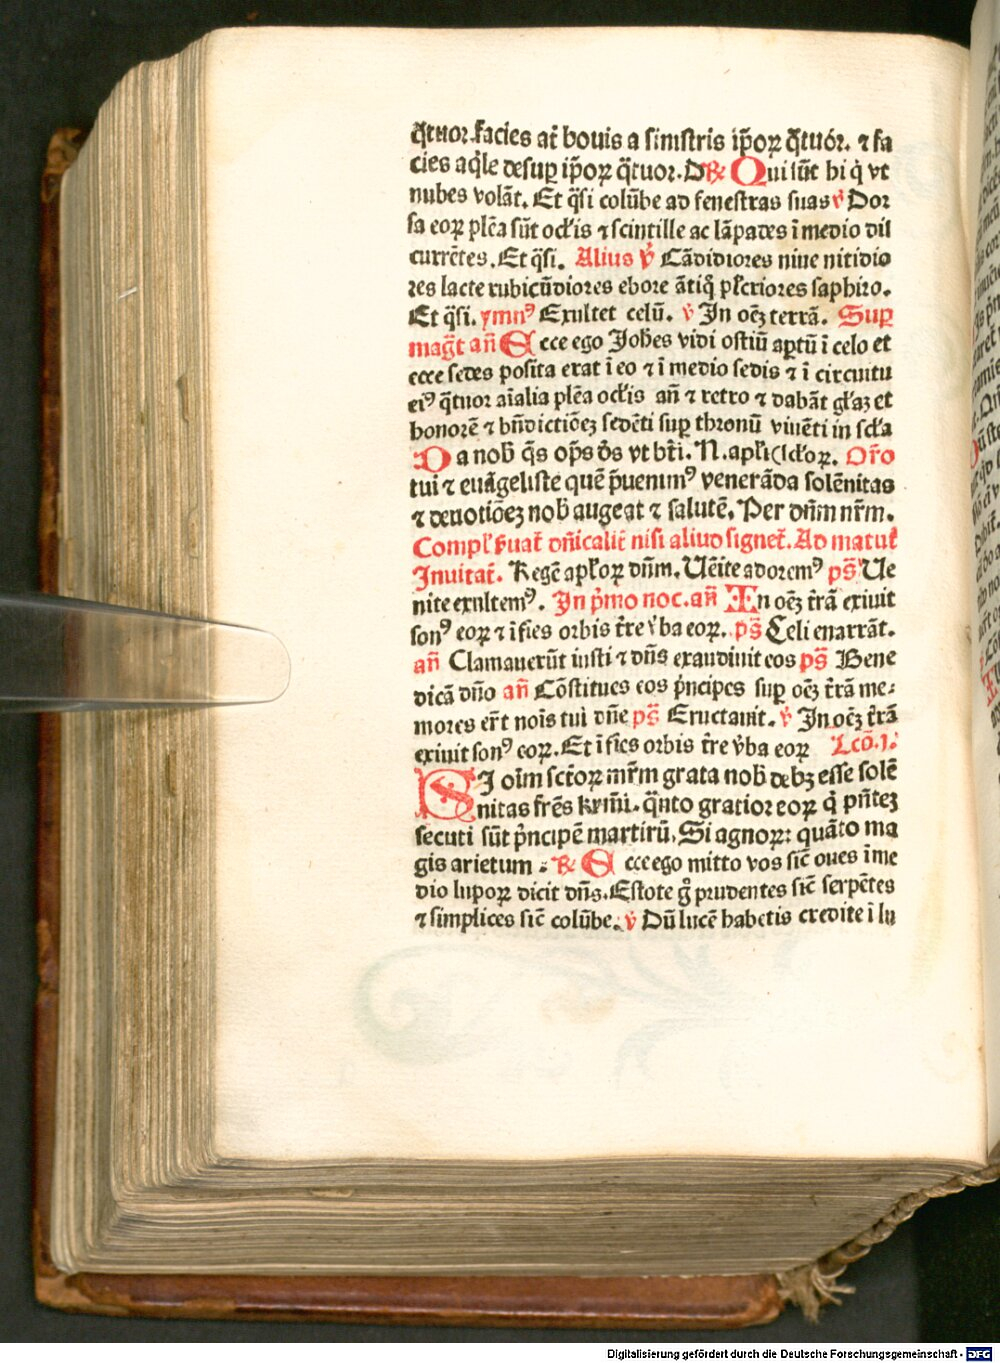 q̃tuor. facies at̃ bouis a sinistris ip̃oꝝ q̃tuór. ⁊ fa
cies aq̇le desuꝑ ip̃oꝝ q̃tuor. D ℟ Qui sũt hi q̇ vt
nubes volãt. Et q̃si colũbe ad fenestras suas v̉ Dor
sa eoꝝ plẽa sũt ocľis ⁊ scintille ac lãpades ĩ medio dis
currẽtes. Et q̃si. Alius v̉ Cãdidiores niue nitidio
res lacte rubicũdiores ebore ãtiq̇ pľcriores saphiro.
Et q̃si. ymnꝰ Exultet celũ. v̉ In oẽꝫ terrã. Suꝑ
mag̃t añ Ecce ego Joh̃es vidi ostiũ aꝑtũ ĩ celo et
ecce sedes posita erat ĩ eo ⁊ ĩ medio sedis ⁊ ĩ circuitu
eiꝰ q̃tuor aĩalia plẽa ocľis añ ⁊ retro ⁊ dabãt gľaꝫ et
honorẽ ⁊ bñdictiõeꝫ sedẽti suꝑ thronũ viuẽti in scľa
Da nob̃ q̃s op̃s d̃s vt bt̃i. N. apľi(scľoꝝ. Or̃o
tui ⁊ euãgeliste quẽ p̃uenimꝰ venerãda solẽnitas
⁊ deuotiõeꝫ nob̃ augeat ⁊ salutẽ. Per dñm nr̃m.
Compľ ẜuat̃ dñicalit̃ nisi aliud signet̃. Ad matut̃
Inuitat̃. Regẽ apľoꝝ dñm. Uẽite adoremꝰ ps̃ Ue
nite exultemꝰ. In p̃mo noc. añ In oẽꝫ t̃rã exiuit
sonꝰ eoꝝ ⁊ ĩ fies orbis t̃re v̉ba eoꝝ. ps̃ Celi enarrãt.
añ Clamauerũt iusti ⁊ dñs exaudiuit eos ps̃ Bene
dicã dño añ Cõstitues eos p̃ncipes suꝑ oẽꝫ t̃rã me⸗
mores er̃t nois̃ tui dñe ps̃ Eructauit. v̉ In oẽꝫ t̃rã
exiuit sonꝰ eoꝝ. Et ĩ fies orbis t̃re v̉ba eoꝝ Lcõ. j.
SI oĩm sct̃oꝝ mr̃m grata nob̃ debꝫ esse solẽ
nitas fr̃es kr̃mi. q̃nto gratior eoꝝ q̇ pñteꝫ
secuti sũt p̃ncipẽ martirũ. Si agnoꝝ: quãto ma
gis arietum ⁖ ℟ Ecce ego mitto vos sic̃ oues ĩ me
dio lupoꝝ dicit dñs. Estote g̊ prudentes sic̃ serpẽtes
⁊ simplices sic̃ colũbe. v̉ Dũ lucẽ habetis credite ĩ lu
Digitalisierung gefördert durch die Deutsche Forschungsgemeinschaft - DFG